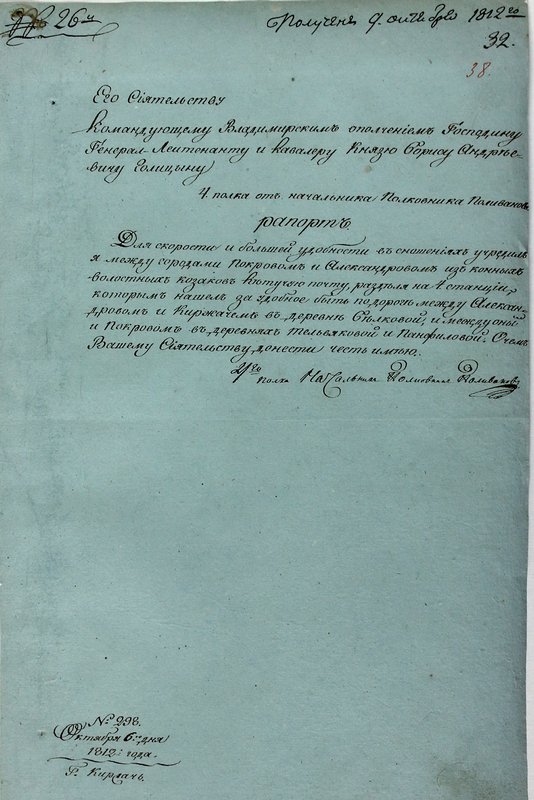 № 26й
Получено 9. октября 1812го
32.
38.
Его Сіятельству
Командующему Владимирскимъ ополченіемъ Господину
Генералъ-Лейтенанту и Кавалеру Князю Борису Андрѣе-
вичу Голицыну
4. полка отъ начальника Полковника Поливанова
рапортъ
Для скорости и большей удобности въ сношеніяхъ учредилъ
я между городами Покровомъ и Александровомъ изъ конныхъ
волостныхъ козаковъ летучую почту, раздѣля на 4 станціи,
которымъ нашелъ за удобное быть по дорогѣ между Алексан-
дровомъ и Киржачемъ въ деревнѣ Бѣлковой, и между оны
и Покровомъ въ деревняхъ Тельвяковой и Панфиловой. О чемъ
Вашему Сіятельству донести честь имѣю.
4го полка Начальникъ Полковникъ Поливановъ
№ 298.
Октября 6го дня
1812: года.
Г. Киржачь.